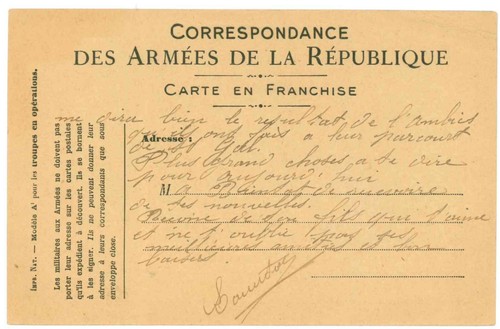 CORRESPONDANCE
DES ARMÉES DE LA RÉPUBLIQUE
CARTE EN FRANCHISE
Imp. Nat. — Modèle A¹ pour les troupes en opérations.
Les militaires aux Armées ne doivent pas
porter leur adresse sur les cartes postales
qu'ils expédient à découvert. Ils se bornent
à les signer. Ils ne peuvent donner leur
adresse à leurs correspondants que sous
enveloppe close.
Adresse :
M
me dira bien le resultat de
qu'ils ont fais a leur parcourt
de
Plus Grand choses a te dire
pour aujourd'hui
a Bientot de
de tes nouvelles.
de ton fils que t'aime
et ne t'oublie pas ses
meilleures et bon
baisers